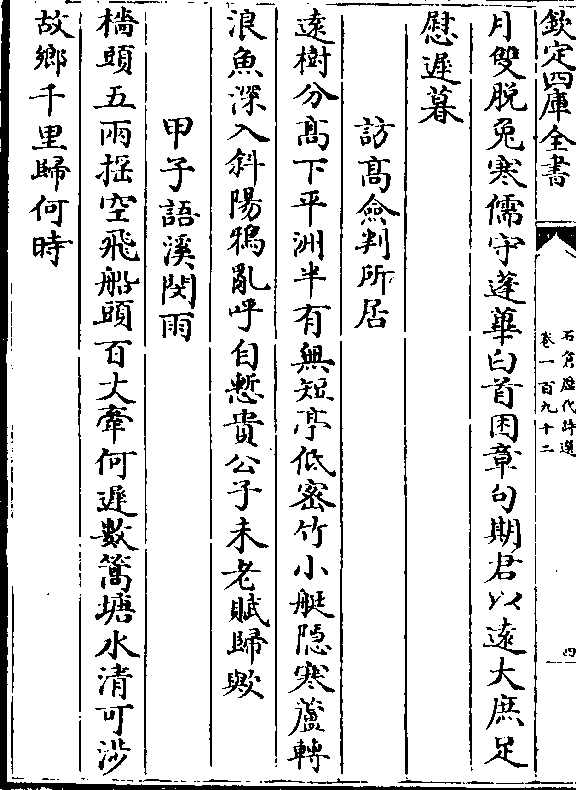 欽定四庫全書
石倉歷代詩選
卷一百九十二
四
月雙脫兔寒儒守蓬蓽白首困章句期君以遠大庶足
慰遲暮
訪髙僉判所居
遠樹分髙下平洲半有無短亭低密竹小艇隐寒蘆轉
浪魚深入斜陽鴉亂呼自慙貴公子未老賦歸歟
甲子語溪閔雨
檣頭五兩揺空飛船頭百丈牽何遲數篙塘水清可涉
故鄉千里歸何時